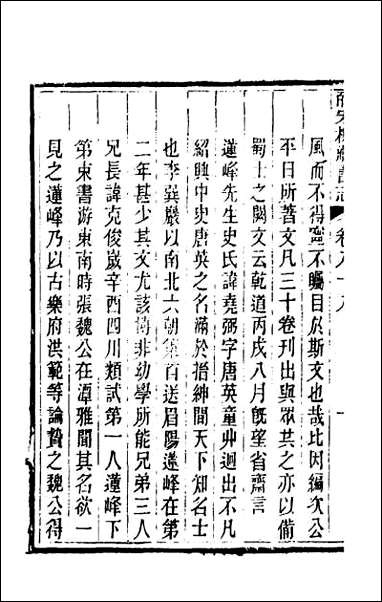 皕宋樓藏書志 卷八十八
風而不得寵不矚目於斯文也哉比因編次公
平日所著文凡三十卷刊出與眾共之亦以備
蜀士之闕文云乾道丙戌八月旣望省齋言
蓮峰先生史氏諱堯弼字唐英童丱迥出不凡
紹興中史唐英之名滿於搢紳間天下知名士
也李巽巖以南北六朝 送眉陽蓮峰在第
二年甚少其文尤該博非幼學所能兄弟三人
兄長諱克俊歲辛酉四川類試第一人蓮峰下
第束書游東南時張魏公在潭雅聞其名欲一
見之蓮峰乃以古樂府洪範等論贄之魏公得